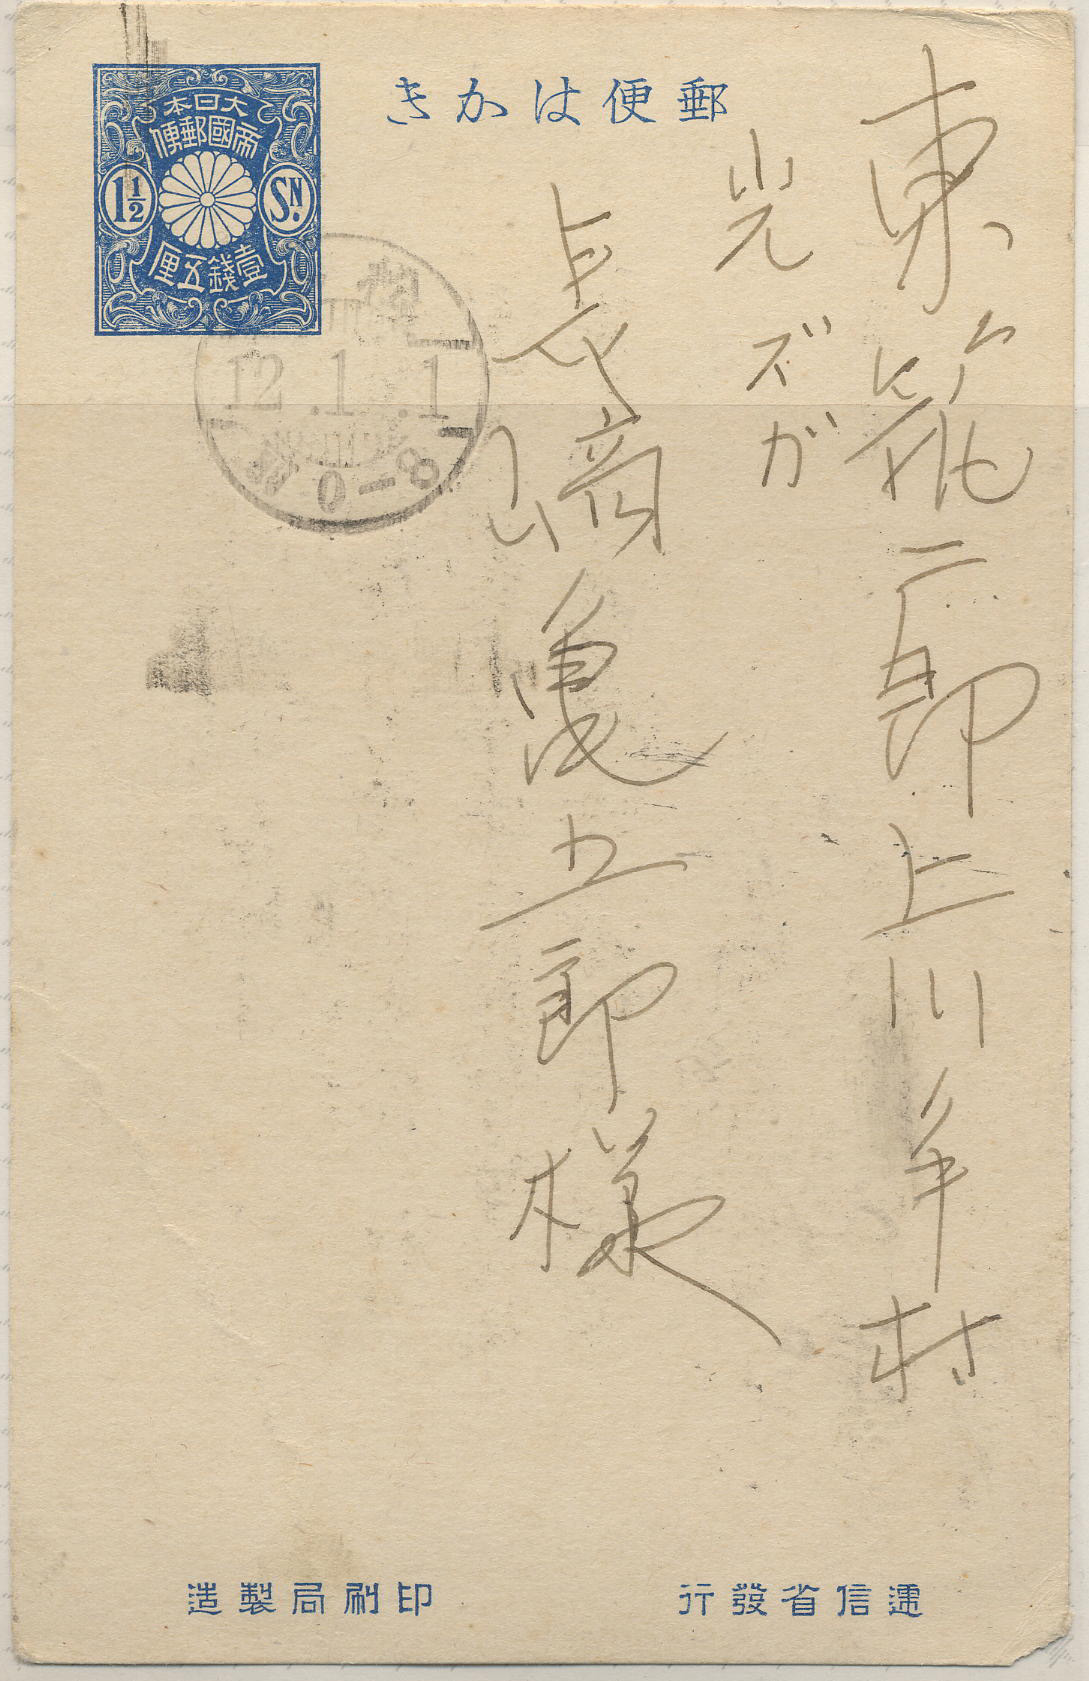 郵便はかき
大日本
帝國郵便
1½ SN.
壹錢五厘
12.1.1
0-8
東筑一郎上川手村
光ズガ
長嵜亀五郎様
遞信省發行
印刷局製造